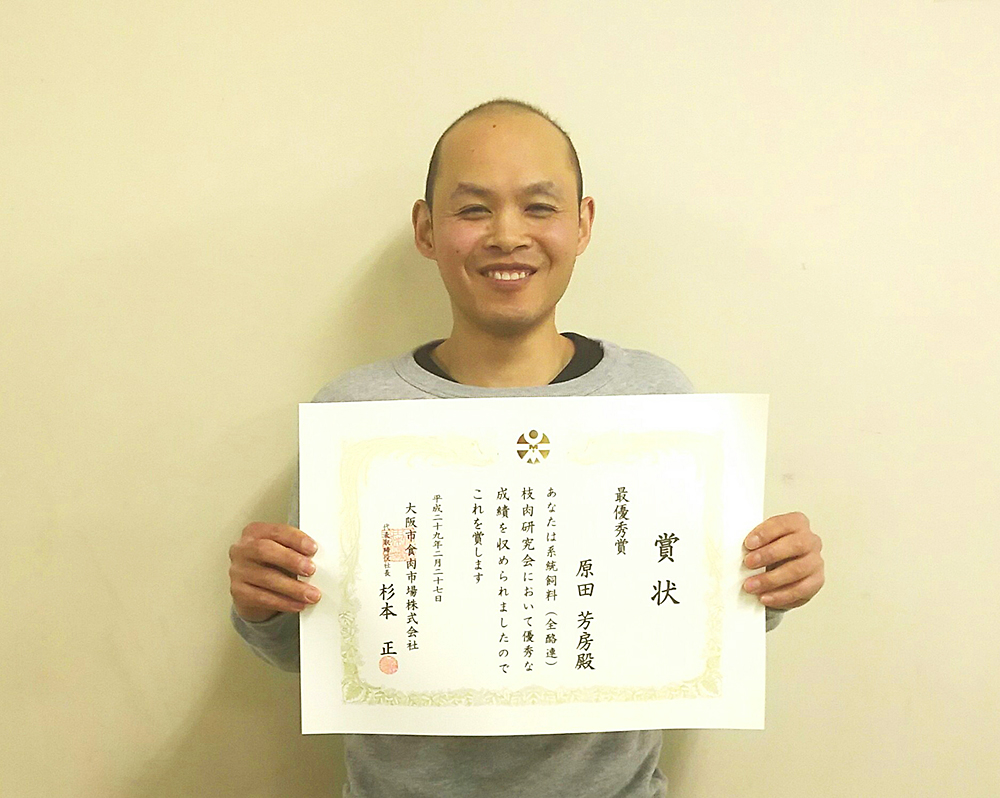 賞状
最優秀賞
原田 芳房殿
あなたは系統飼料(全酪連)
枝肉研究会において優秀な
成績を収められましたので
これを賞します
平成二十九年二月二十七日
大阪市食肉市場株式会社
代表取締役社長 杉本 正